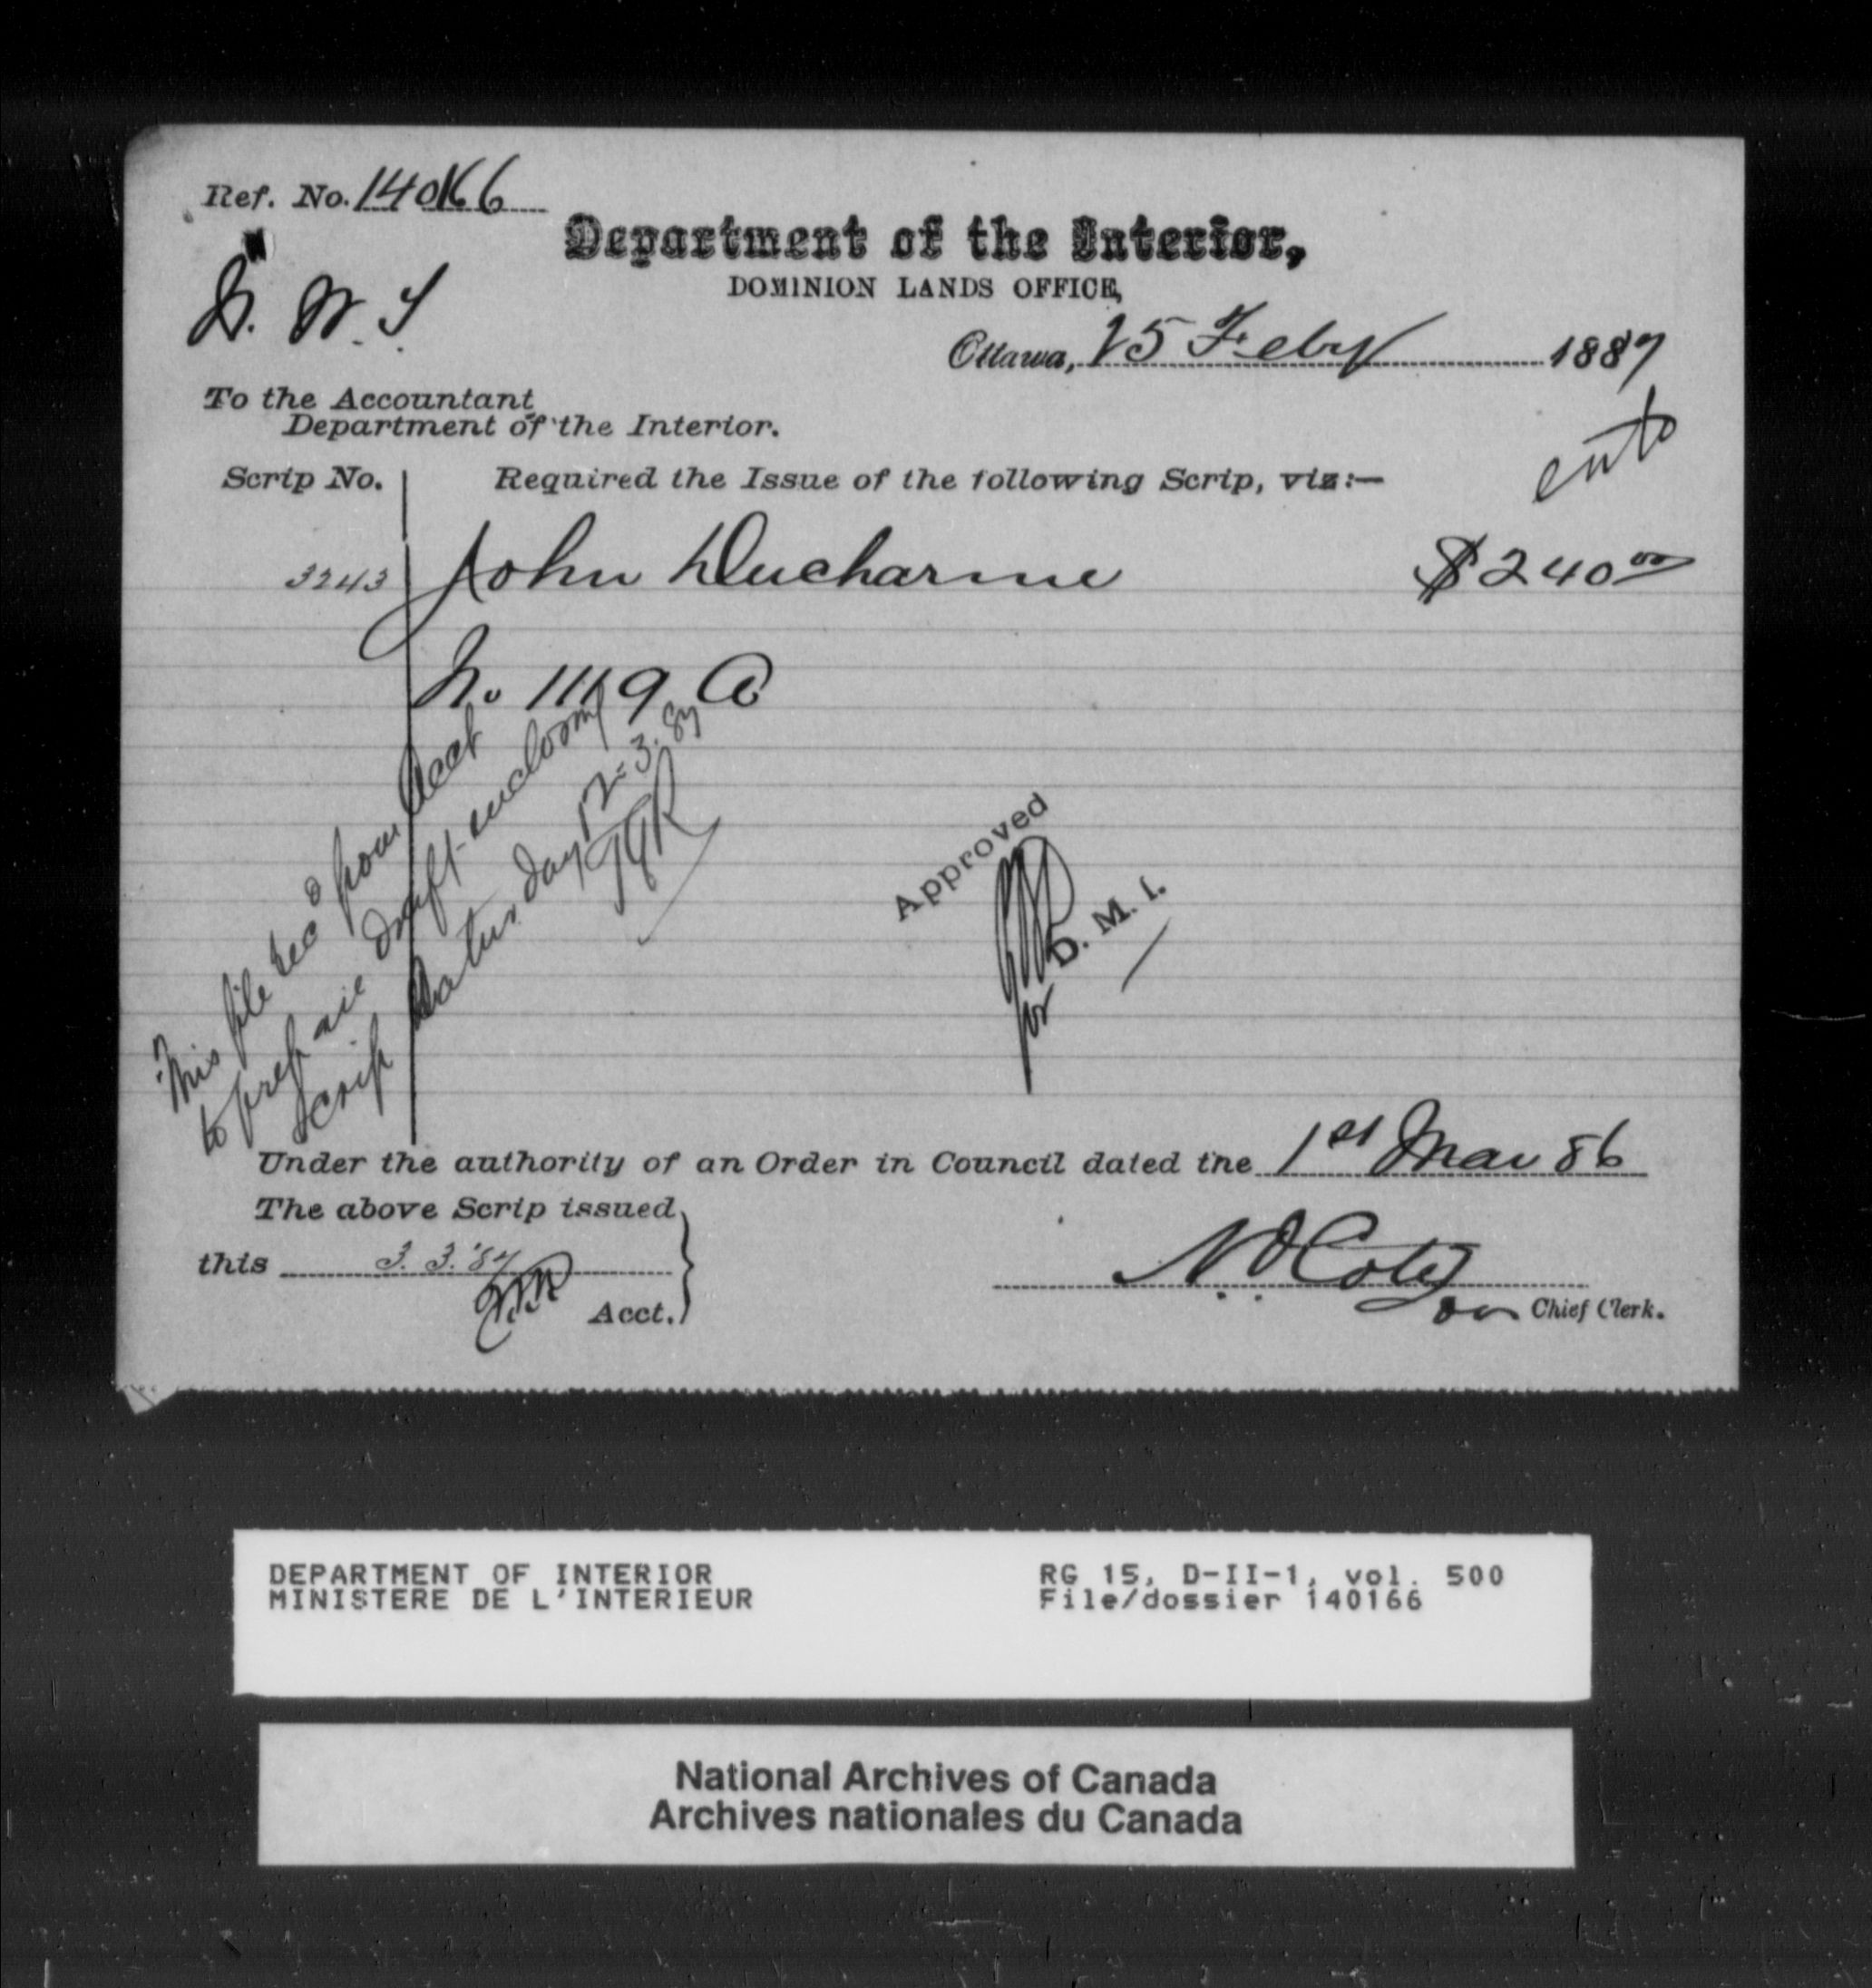 Ref. No. 140166
N. W. T.
Department of the Interior,
DOMINION LANDS OFFICE,
Ottawa, 25 Feby 1887
To the Accountant
Department of the Interior.
Scrip No. Required the Issue of the following Scrip, viz:—
3243 John Ducharme $240 00
No 1119
This file rec d from Acct
to prepare draft enclosing
scrip
Approved
for D. M. I.
Under the authority of an Order in Council dated the 1st Mar 86
The above Scrip issued
this 3. 3. '87
Acct.
N O Coté
Chief Clerk.
DEPARTMENT OF INTERIOR RG 15, D-II-1, vol. 500
MINISTERE DE L'INTERIEUR File/dossier 140166
National Archives of Canada
Archives nationales du Canada